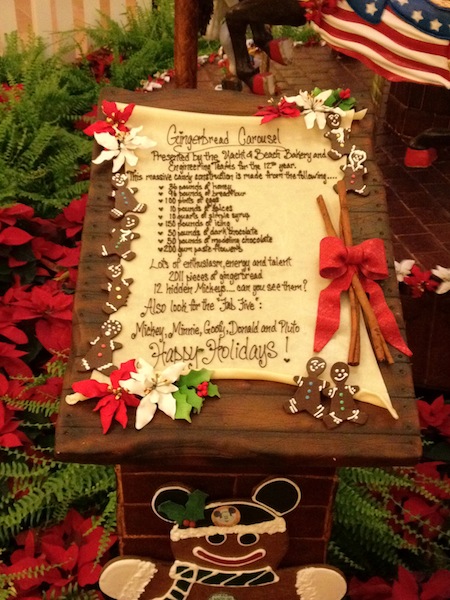 Gingerbread Carousel
Presented by the Yacht & Beach Bakery and
Engineering Teams for the 12th year.
This massive candy construction is made from the following....
36 pounds of honey
96 pounds of bread flour
100 pints of eggs
10 pounds of spices
10 quarts of simple syrup
150 pounds of icing
50 pounds of dark chocolate
50 pounds of modeling chocolate
200 gum paste flowers
Lots of enthusiasm, energy and talent
2011 pieces of gingerbread
12 hidden Mickeys.... can you see them?
Also look for the "Fab Five":
Mickey, Minnie, Goofy, Donald and Pluto
Happy Holidays!